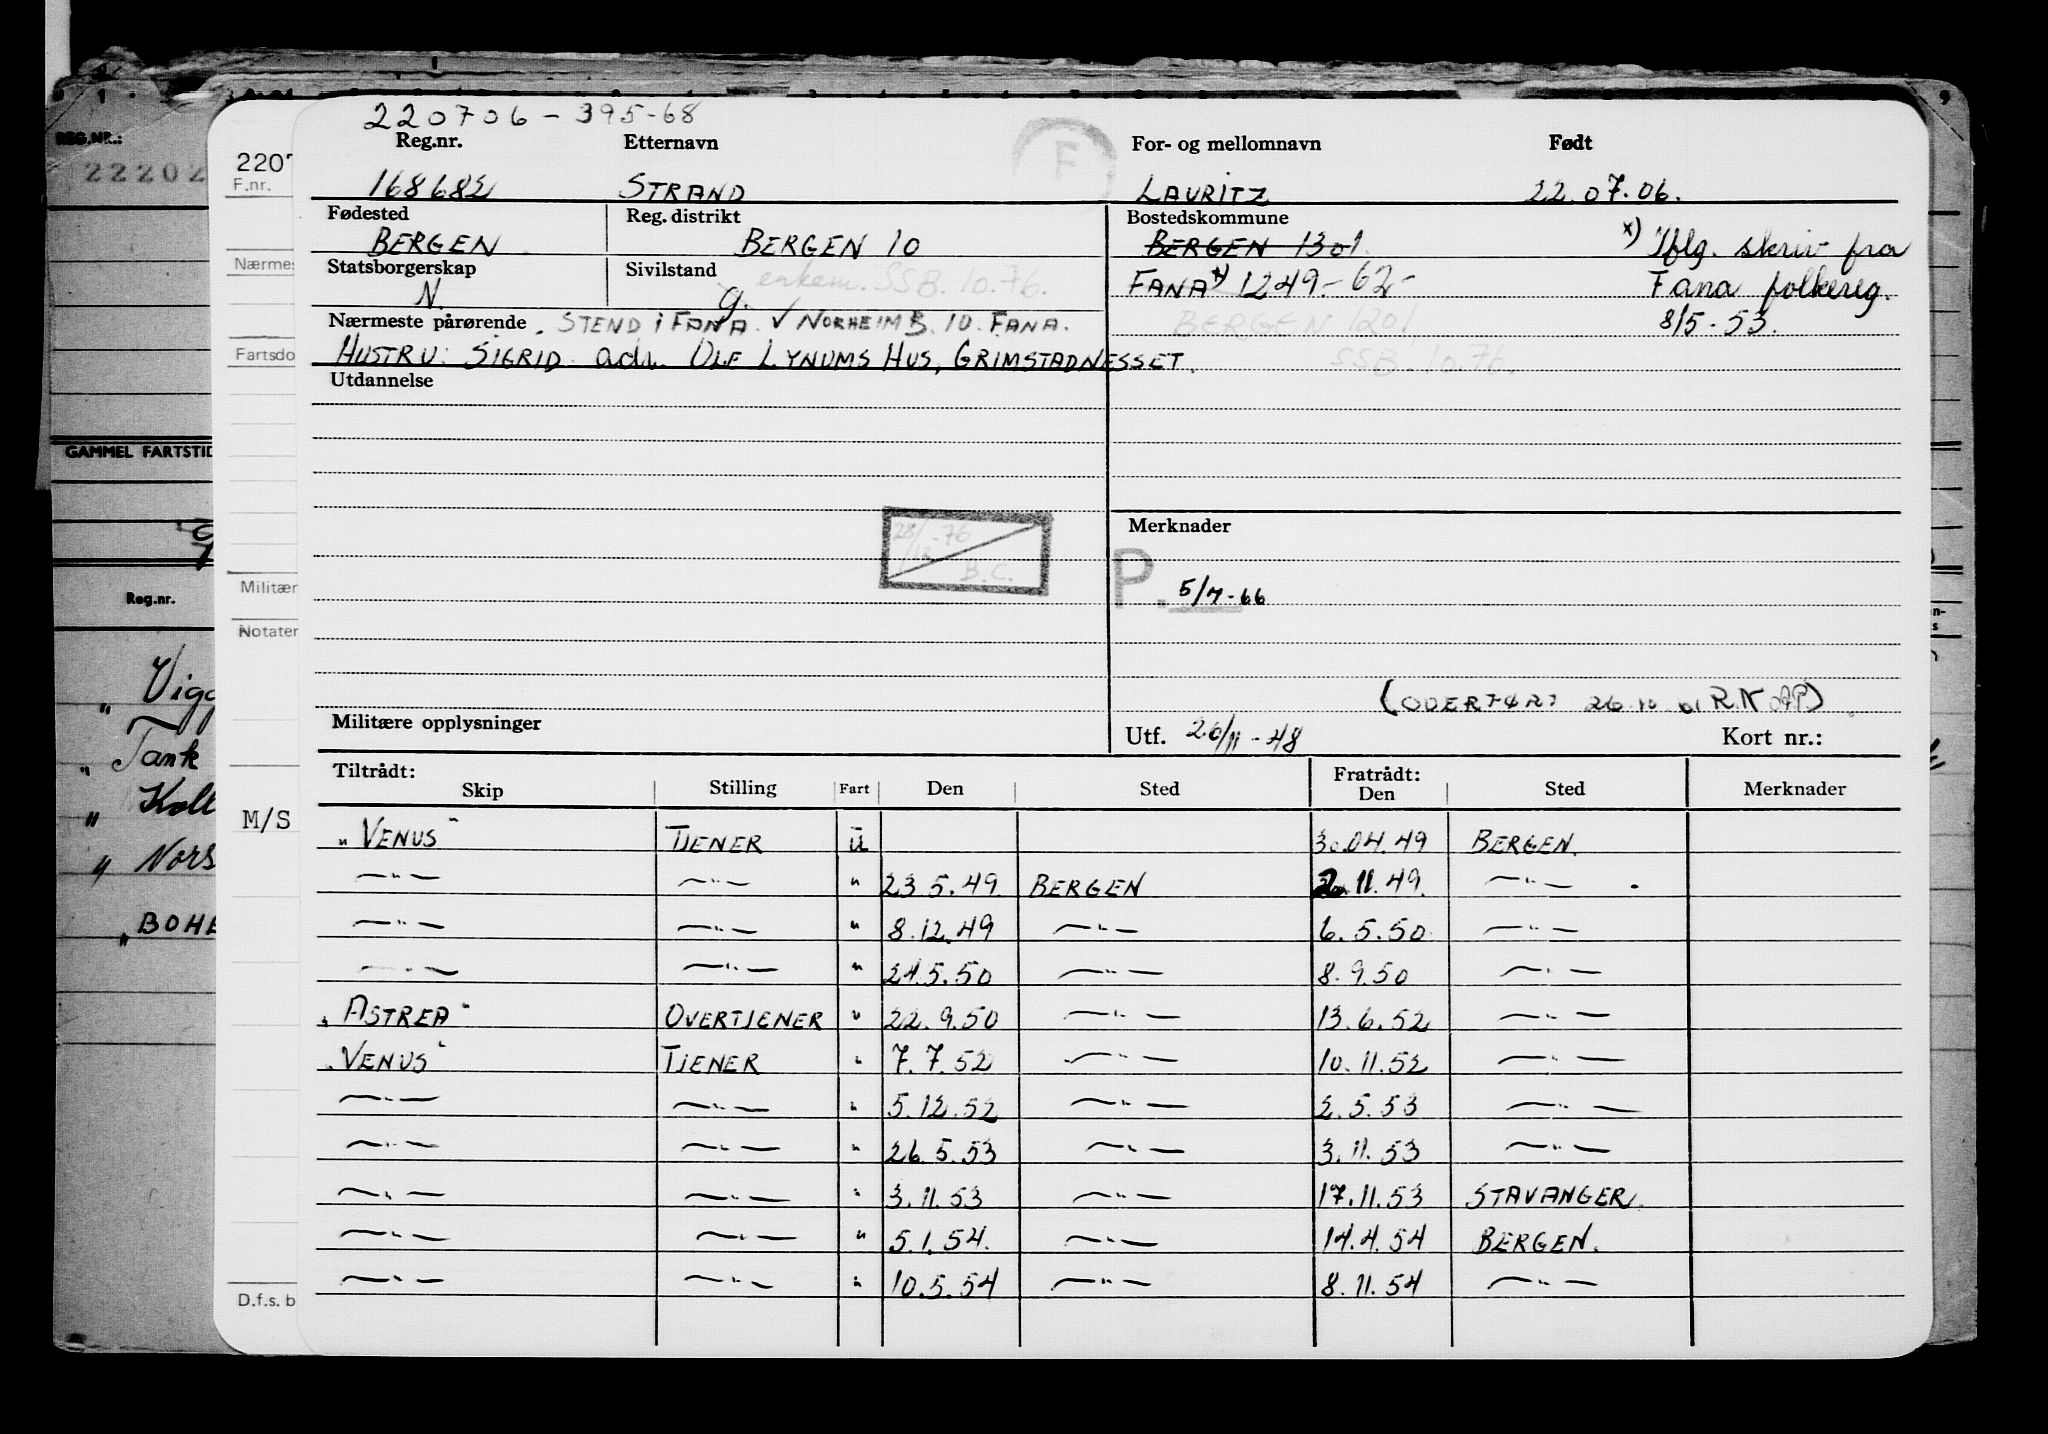 220706 - 395-68
Reg.nr. Etternavn F For- og mellomnavn Født
168682 STRAND LAURITZ 22.07.06.
Fødested Reg. distrikt Bostedskommune
BERGEN BERGEN 10 BERGEN 1301 x) Iflg. skriv fra
Statsborgerskap Sivilstand enkem. SSB. 10.76. FANA x) 1249.-62- Fana folkereg.
N. g. BERGEN 1201 8/5-53.
Nærmeste pårørende STEND i FANA. ✓ NORHEIM B. 10. FANA. SSB. 10.76.
HUSTRU: SIGRID adr. OLE LYNUMS HUS, GRIMSTADNESSET.
Utdannelse
28/12-76 B.C.
Merknader
P. 5/7-66
(OVERFØRT 26.10.61 R.N
Militære opplysninger Utf. 26/11-48 Kort nr.:
Tiltrådt: Fratrådt:
Skip Stilling Fart Den Sted Den Sted Merknader
"VENUS" TJENER U 30.04.49 BERGEN.
—"— —"— " 23.5.49 BERGEN 2.11.49. —"—
—"— —"— " 8.12.49 —"— 6.5.50 —"—
—"— —"— " 24.5.50 —"— 8.9.50 —"—
"ASTREA" OVERTJENER " 22.9.50 —"— 13.6.52 —"—
"VENUS" TJENER " 7.7.52 —"— 10.11.52 —"—
—"— —"— " 5.12.52 —"— 2.5.53 —"—
—"— —"— " 26.5.53 —"— 3.11.53 —"—
—"— —"— " 3.11.53 —"— 17.11.53 STAVANGER.
—"— —"— " 5.1.54. —"— 14.4.54 BERGEN.
—"— —"— " 10.5.54 —"— 8.11.54 —"—
REG.NR.:
22202
GAMMEL FARTSTID
Reg.nr.
" Tank
2207
F.nr.
Nærmes
Fartsdo
Militær
Notater
M/S
D.f.s. b